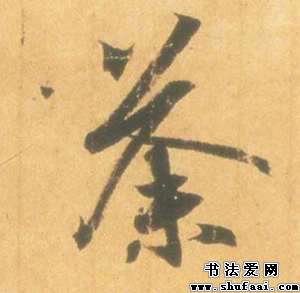 茶
书法爱网
www.shufaai.com